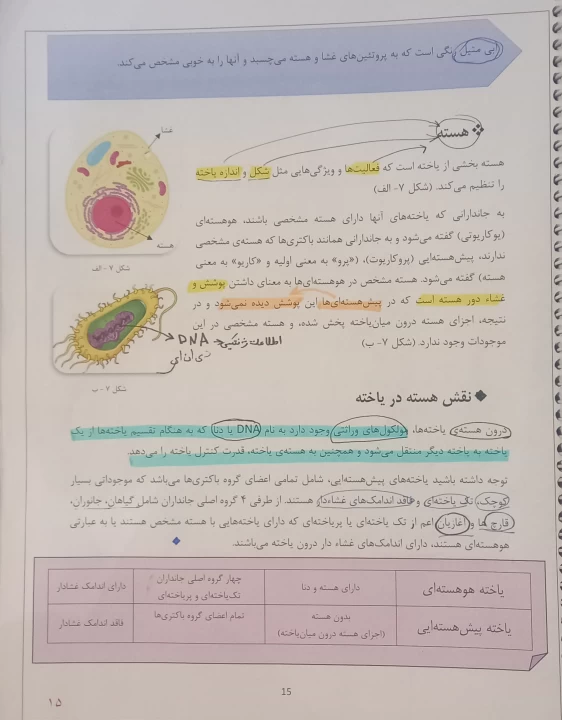 آبی متیل رنگی است که به پروتئین‌های غشا و هسته می‌چسبد و آنها را به خوبی مشخص می‌کند.
❖ هسته
هسته بخشی از یاخته است که فعالیت‌ها و ویژگی‌هایی مثل شکل و اندازه یاخته
را تنظیم می‌کند. (شکل ۷- الف)
به جاندارانی که یاخته‌های آنها دارای هسته مشخصی باشند، هوهسته‌ای
(یوکاریوتی) گفته می‌شود و به جاندارانی همانند باکتری‌ها که هسته‌ی مشخصی
ندارند، پیش‌هسته‌ایی (پروکاریوت)، («پرو» به معنی اولیه و «کاریو» به معنی
هسته) گفته می‌شود. هسته مشخص در هوهسته‌ای‌ها به معنای داشتن پوشش و
غشاء دور هسته است که در پیش‌هسته‌ای‌ها این پوشش دیده نمی‌شود و در
نتیجه، اجزای هسته درون میان‌یاخته پخش شده، و هسته مشخصی در این
موجودات وجود ندارد. (شکل ۷- ب)
غشاء
هسته
شکل ۷ - الف
DNA → اطلاعات ژنتیکی
دی ان ای
شکل ۷ - ب
◆ نقش هسته در یاخته
درون هسته‌ی یاخته‌ها، مولکول‌های وراثتی وجود دارد به نام DNA یا دنا که به هنگام تقسیم یاخته‌ها از یک
یاخته به یاخته دیگر منتقل می‌شود و همچنین به هسته‌ی یاخته، قدرت کنترل یاخته را می‌دهد.
توجه داشته باشید یاخته‌های پیش‌هسته‌ایی، شامل تمامی اعضای گروه باکتری‌ها می‌باشد که موجوداتی بسیار
کوچک، تک یاخته‌ای و فاقد اندامک‌های غشاءدار هستند. از طرفی ۴ گروه اصلی جانداران شامل گیاهان، جانوران،
قارچ ها و آغازیان اعم از تک یاخته‌ای یا پریاخته‌ای که دارای یاخته‌هایی با هسته مشخص هستند یا به عبارتی
هوهسته‌ای هستند، دارای اندامک‌های غشاء دار درون یاخته می‌باشند.
یاخته هوهسته‌ای دارای هسته و دنا چهار گروه اصلی جانداران تک‌یاخته‌ای و پریاخته‌ای دارای اندامک غشادار
یاخته پیش‌هسته‌ایی بدون هسته (اجزای هسته درون میان‌یاخته) تمام اعضای گروه باکتری‌ها فاقد اندامک غشادار
15
۱۵